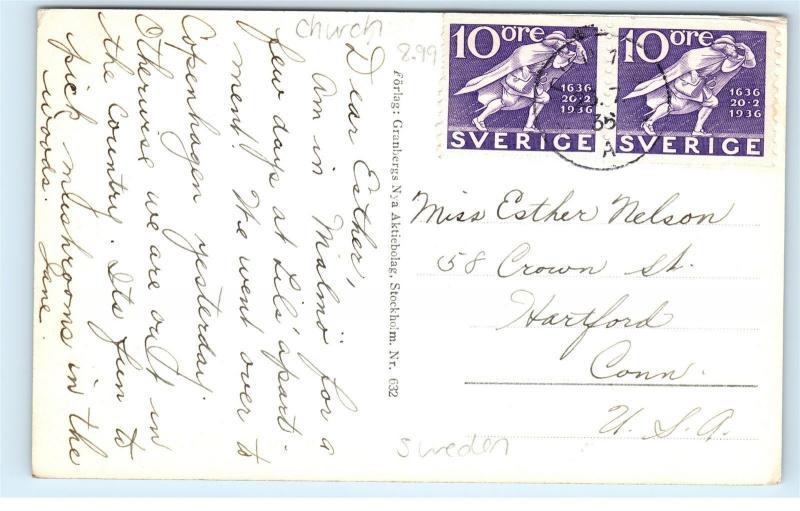 church
8.99
Dear Esther,
Am in Malmö for a
few days at Lils' apart-
ment. We went over to
Copenhagen yesterday.
Otherwise we are out in
the country. Its fun to
pick mushrooms in the
woods. Jane.
Förlag: Granbergs Nya Aktiebolag, Stockholm. Nr. 632
10 öre
1636
20·2
1936
SVERIGE
10 öre
1636
20·2
1936
SVERIGE
A
Miss Esther Nelson
58 Crown St.
Hartford
Conn.
U.S.A.
Sweden